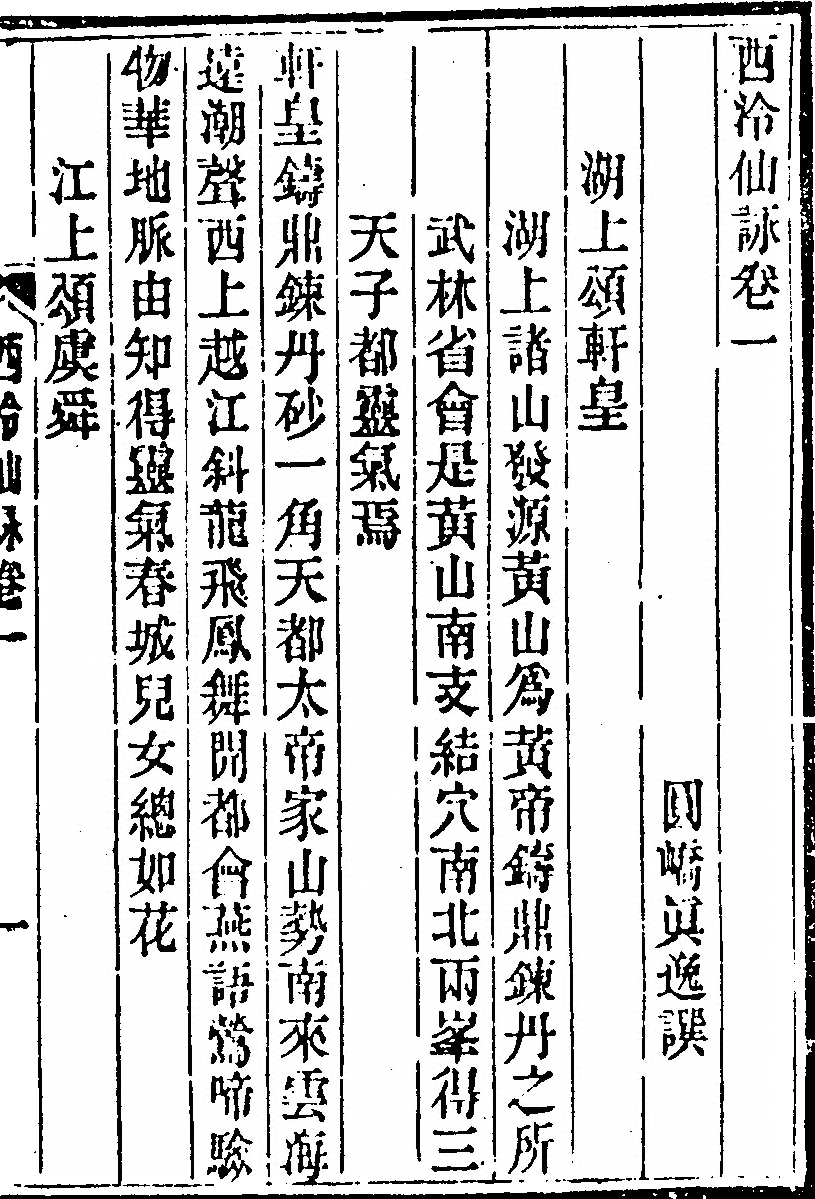 西泠仙詠卷一
圓嶠眞逸譔
湖上頌軒皇
湖上諸山發源黃山爲黃帝鑄鼎鍊丹之所
武林省會是黃山南支結穴南北兩峯得三
天子都靈氣焉
軒皇鑄鼎鍊丹砂一角天都太帝家山勢南來雲海
遠潮聲西上越江斜龍飛鳳舞開都會燕語鶯啼驗
物華地脈由知得靈氣春城兒女總如花
江上頌虞舜
西泠仙詠卷一
一